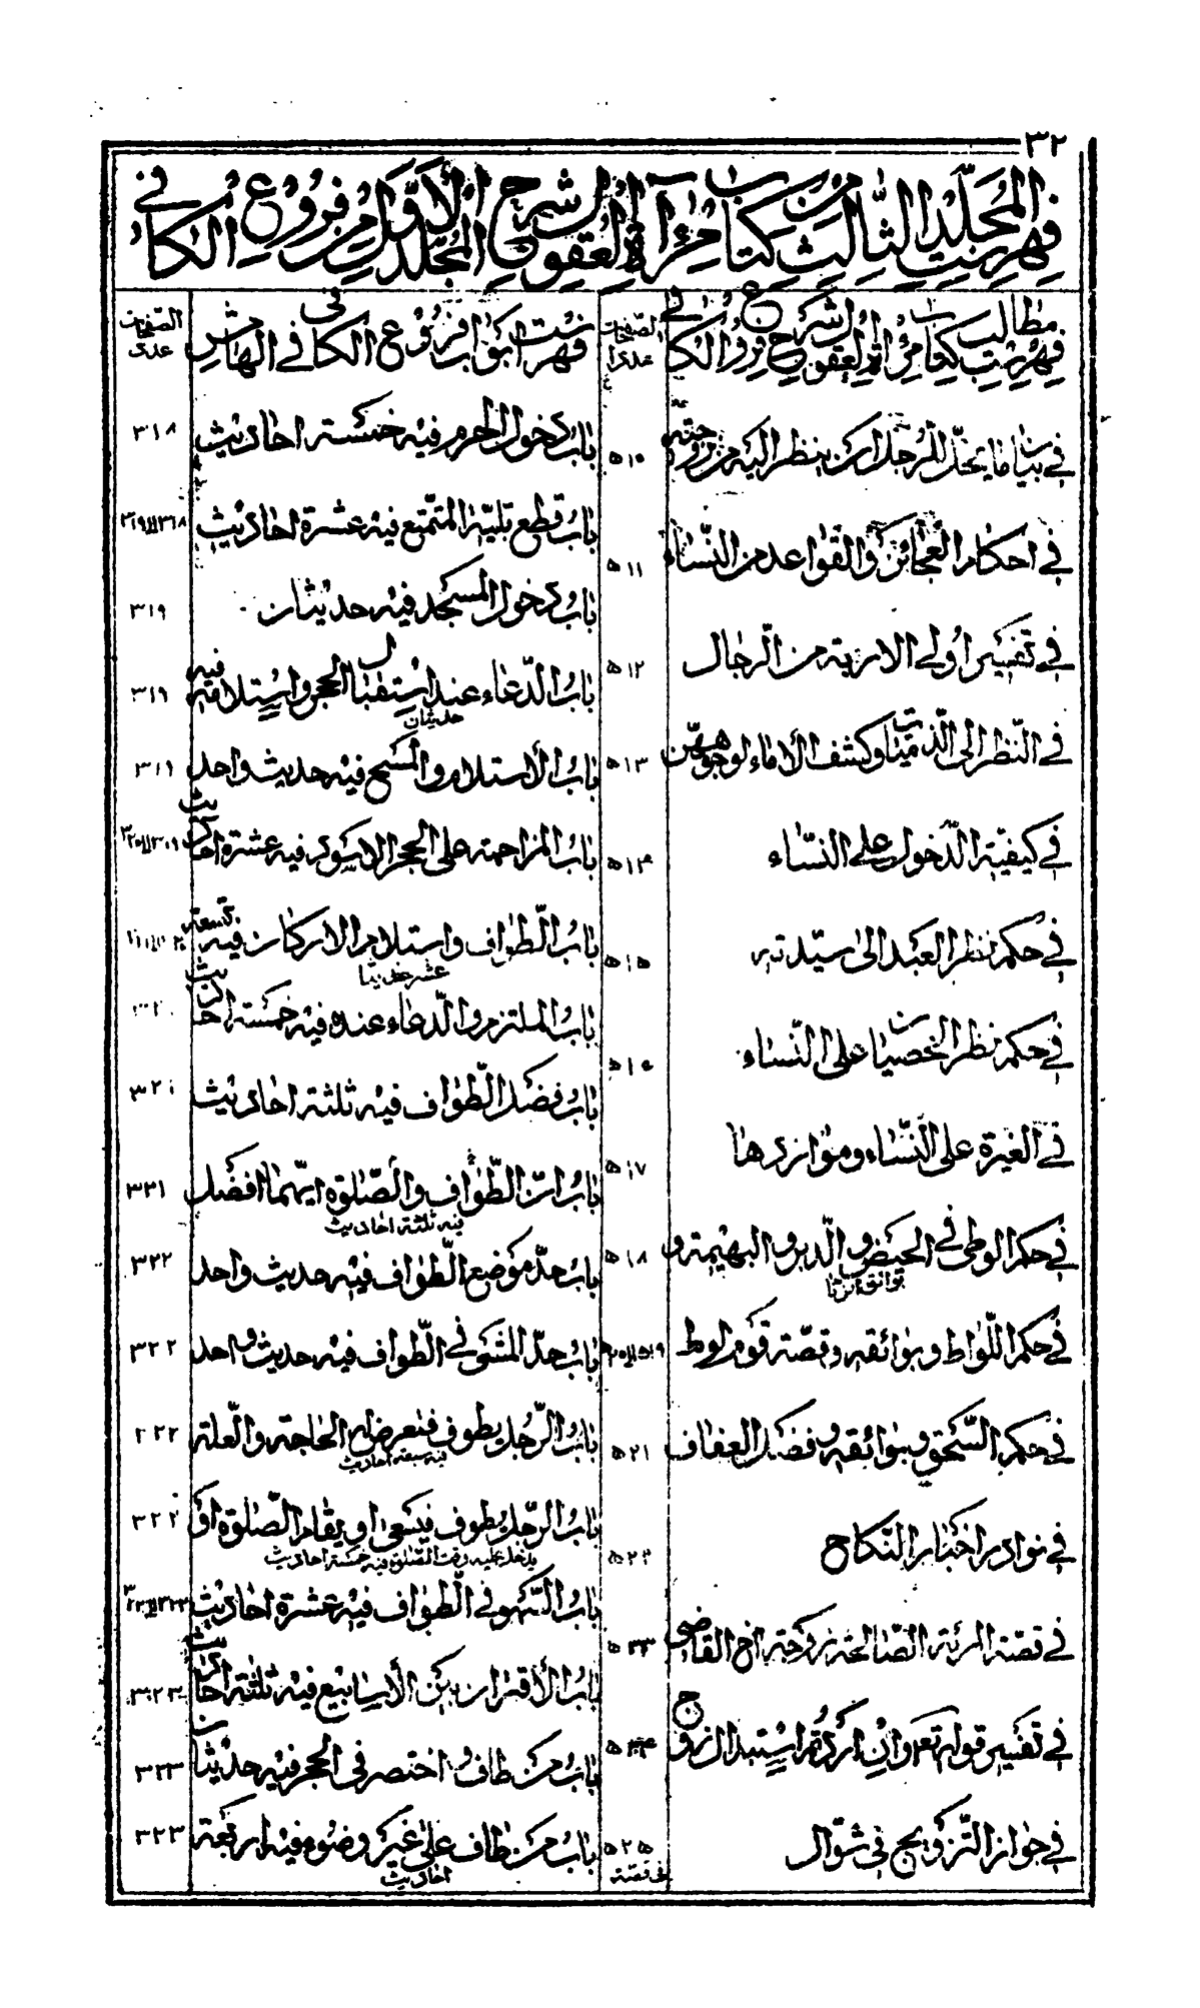 ٣٢
فهرست المجلد الثالث من كتاب مرآة العقول شرح المجلد الأول من فروع الكافي
فهرست مطالب كتاب مرآة العقول شرح فروع الكافي
عدد الصفحات
فهرست أبواب فروع الكافي في الهامش
عدد الصفحات
في بيان ما يحل للرجل ان ينظر اليه من زوجته ٥١٠
في احكام العجائز والقواعد من النساء ٥١١
في تفسير اولي الاربة من الرجال ٥١٢
في النظر الى الذميات وكشف الأماء لوجوههن ٥١٣
في كيفية الدخول على النساء ٥١٤
في حكم نظر العبد الى سيدته ٥١٥
في حكم نظر الخصيان على النساء
في الغيرة على النساء ومواردها ٥١٧
في حكم الوطي في الحيض والدبر والبهيمة و ٥١٨
توابع الزنا
في حكم اللواط وبوائقه وقصة قوم لوط
في حكم السحق وبوائقه وفضل العفاف ٥٢١
في نوادر اخبار النكاح ٥٢٢
في قصة المرئة الصالحة زوجة اخ القاضي ٥٢٣
في تفسير قوله تع وان اردتم استبدال زوج ٥٢٤
في جواز التزويج في شوال ٥٢٥
باب دخول الحرم فيه خمسة احاديث ٣١٨
باب قطع تلبية المتمتع فيه عشرة احاديث ٣١٨ ٣١٩
باب دخول المسجد فيه حديثان ٣١٩
باب الدعاء عند استقبال الحجر واستلامه فيه ٣١٩
حديثان
باب الأستلام والمسح فيه حديث واحد ٣١٩
باب المزاحمة على الحجر الاسود فيه عشرة احاديث
باب الطواف واستلام الاركان فيه تسعة
عشر حديثا
باب الملتزم والدعاء عنده فيه خمسة احاديث
باب فضل الطواف فيه ثلثة احاديث
باب ان الطواف والصلوة ايهما افضل ٣٢١
فيه ثلثة احاديث
باب حد موضع الطواف فيه حديث واحد ٣٢٢
باب حد المشي في الطواف فيه حديث واحد ٣٢٢
باب الرجل يطوف فتعرض له الحاجة والعلة ٣٢٢
فيه سبعة احاديث
باب الرجل يطوف فيعيى او يقام الصلوة أو ٣٢٢
يدخل عليه وقت الصلوة فيه خمسة احاديث
باب السهو في الطواف فيه عشرة احاديث
باب الأقتران بين الأسابيع فيه ثلثة احاديث ٣٢٣
باب من طاف واختصر في الحجر فيه حديثان ٣٢٣
باب من طاف على غير وضوء فيه اربعة ٣٢٣
احاديث